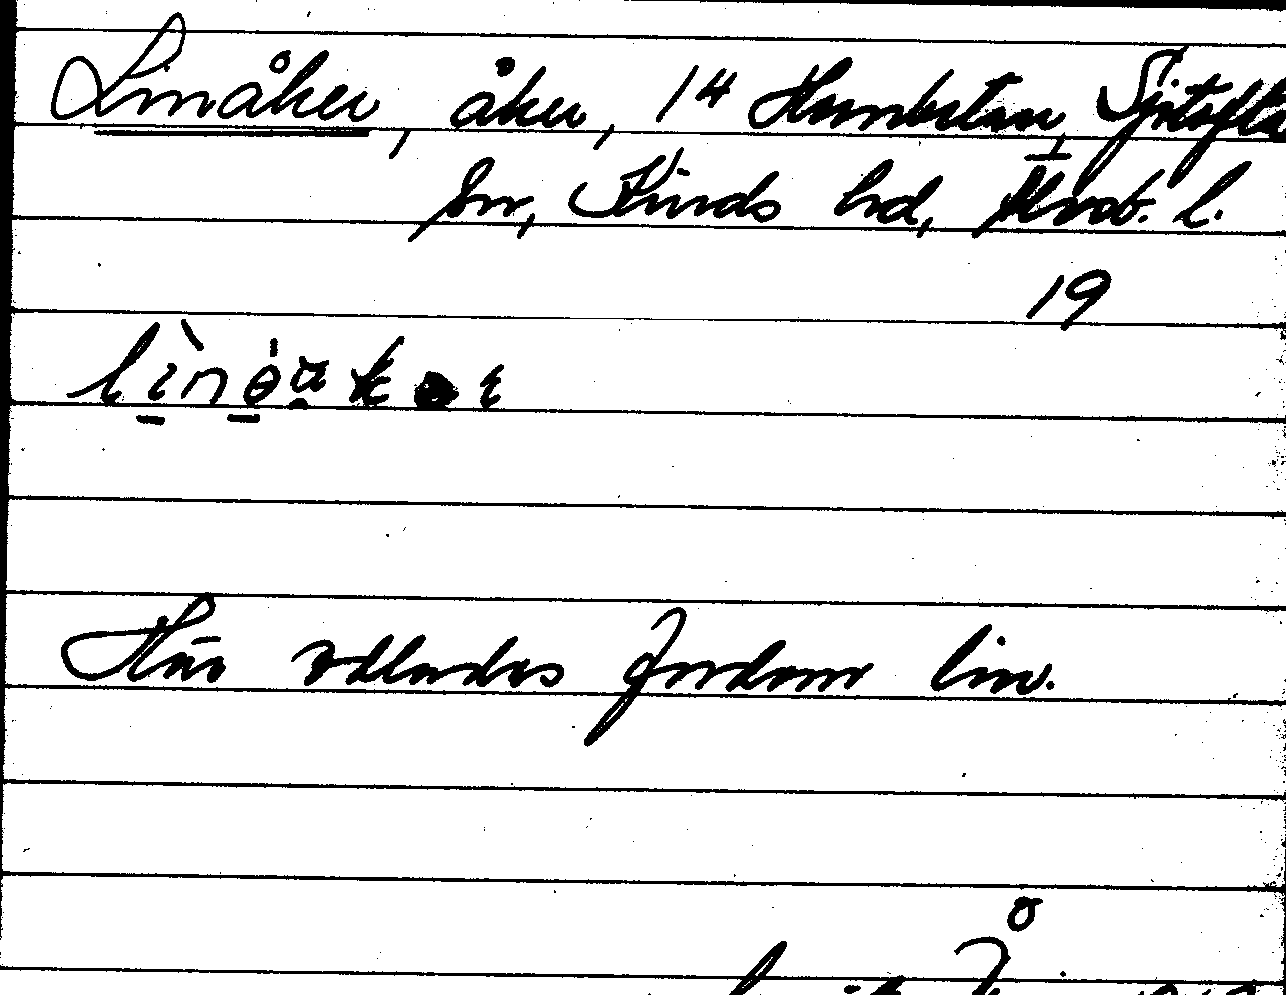 Linåker, åker, 14 Humbetan, Sjötofta
sn, Kinds hd, Älvsb. l.
19
Här odlades fordom lin.